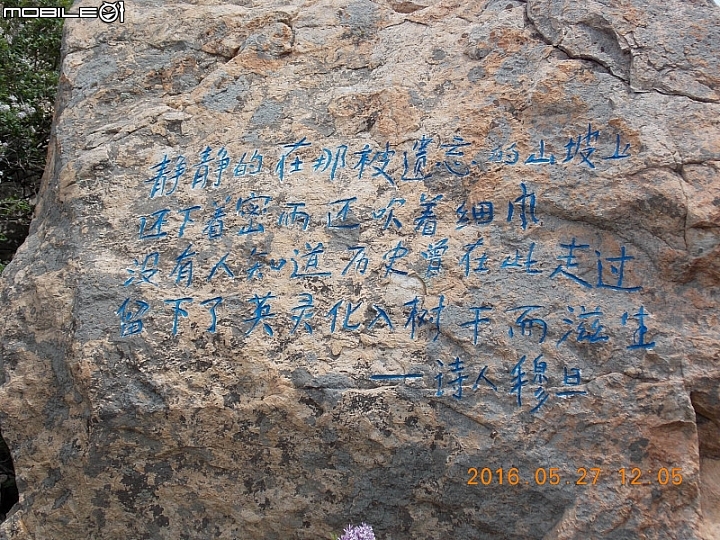 MOBILE01
静静的在那被遗忘的山坡上
还下着密雨还吹着细风
没有人知道历史曾在此走过
留下了英灵化入树干而滋生
——诗人穆旦
2016.05.27 12:05